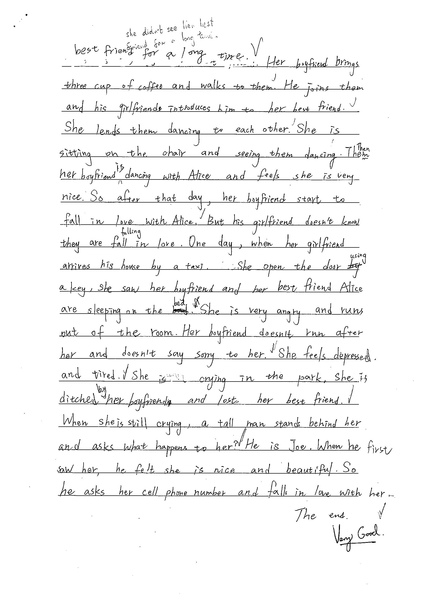 she didn't see her best
friend for a long time.
best friend for a long time. ✓
Her boyfriend brings
three cup of coffee and walks to them. He joins them
and his girlfriends introduces him to her best friend. ✓
She lends them dancing to each other. ✓ She is
sitting on the chair and seeing them dancing. Then
her boyfriend is dancing with Alice and feels she is very
nice. So after that day, her boyfriend start to
fall in love with Alice. ✓ But his girlfriend doesn't know
falling
they are fall in love. One day, when her girlfriend
arrives his house by a taxi. She open the door using
a key, she saw her boyfriend and her best friend Alice
are sleeping on the bed. ✓ She is very angry and runs
out of the room. Her boyfriend doesn't run after
her and doesn't say sorry to her. ✓ She feels depressed
and tired. ✓ She is crying in the park. She is
ditched by her boyfriend and lost her best friend. ✓
When she is still crying, a tall man stands behind her
and asks what happens to her? ✓ He is Joe. When he first
saw her, he felt she is nice and beautiful. So
he asks her cell phone number and fall in love with her.
The end. ✓
Very Good.